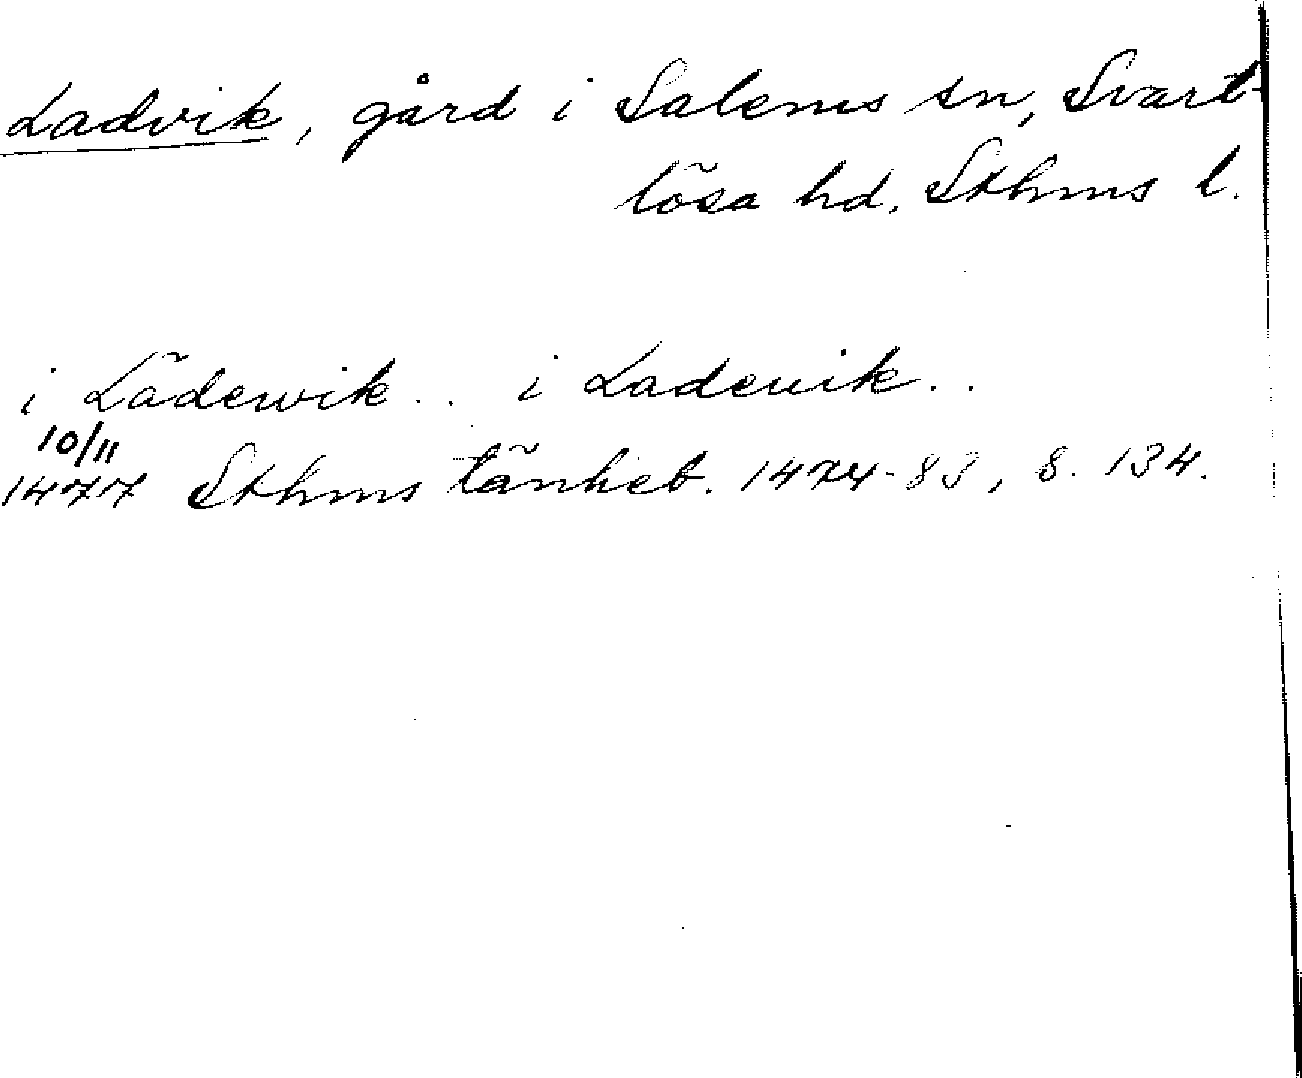 Ladvik, gård i Salems sn, Svart-
lösa hd, Sthms l.
i Lädewik.. i Ladeuik..
10/11
1477 Sthms tänkeb. 1474-83, s. 134.